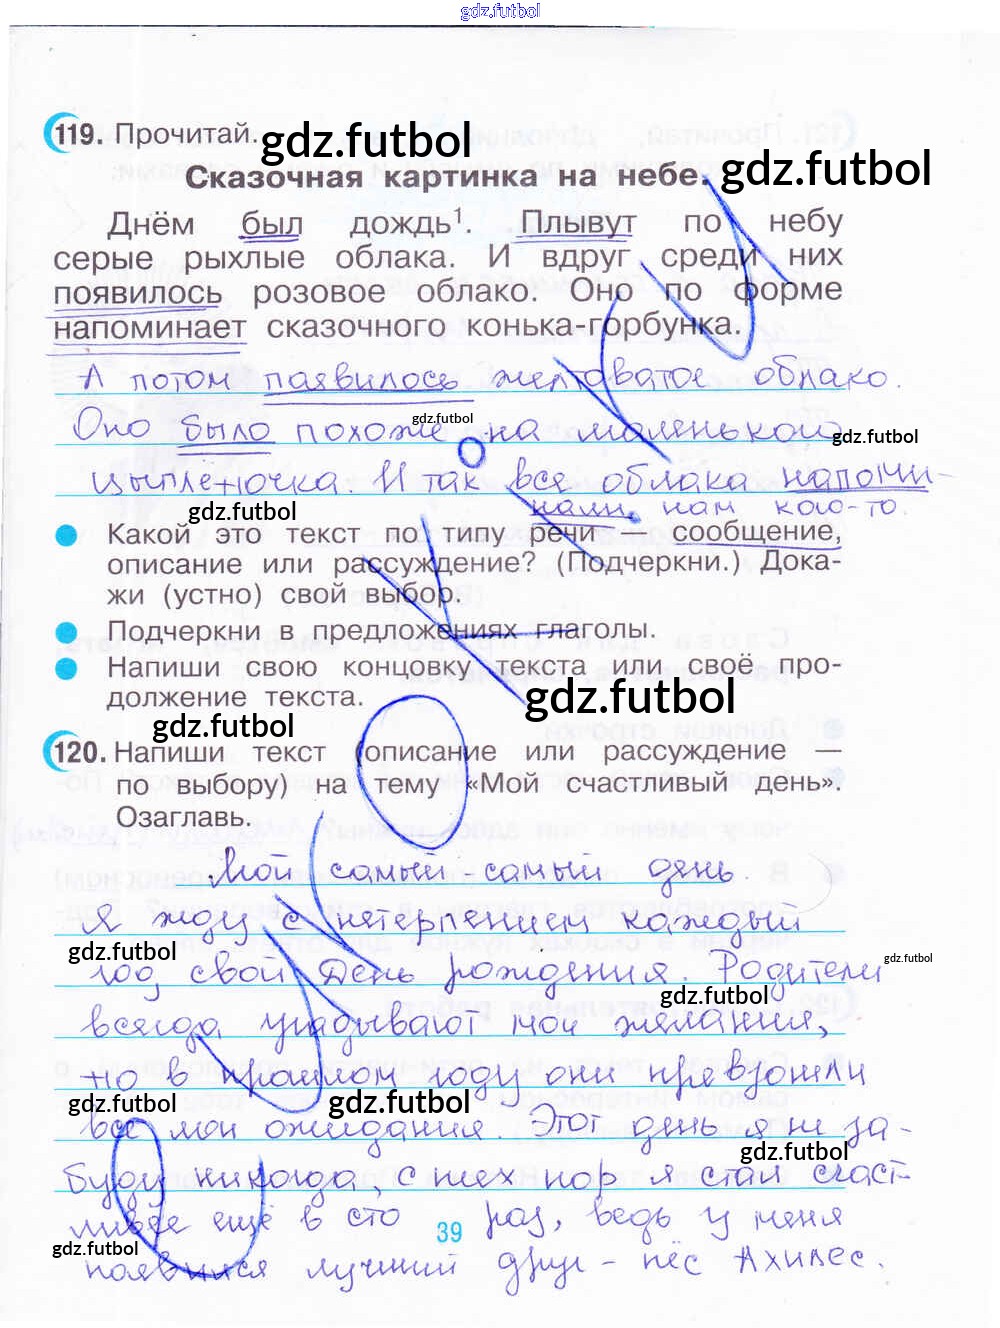 gdz.futbol
119. Прочитай.
gdz.futbol
Сказочная картинка на небе.
gdz.futbol
Днём был дождь¹. Плывут по небу
серые рыхлые облака. И вдруг среди них
появилось розовое облако. Оно по форме
напоминает сказочного конька-горбунка.
А потом появилось желтоватое облако.
gdz.futbol
Оно было похоже на маленького
gdz.futbol
цыплёночка. И так все облака напоми-
нали нам кого-то.
gdz.futbol
Какой это текст по типу речи — сообщение,
описание или рассуждение? (Подчеркни.) Дока-
жи (устно) свой выбор.
Подчеркни в предложениях глаголы.
Напиши свою концовку текста или своё про-
должение текста.
gdz.futbol
gdz.futbol
120. Напиши текст (описание или рассуждение —
по выбору) на тему «Мой счастливый день».
Озаглавь.
Мой самый самый день
Я жду с нетерпением каждый
gdz.futbol
gdz.futbol
год свой День рождения. Родители
gdz.futbol
всегда угадывают мои желания,
но в прошлом году они превзошли
gdz.futbol
gdz.futbol
все мои ожидания. Этот день я не за-
gdz.futbol
буду никогда, с тех пор я стал счаст-
ливее ещё в сто раз, ведь у меня
39
gdz.futbol
появился лучший друг - пёс Ахилес.